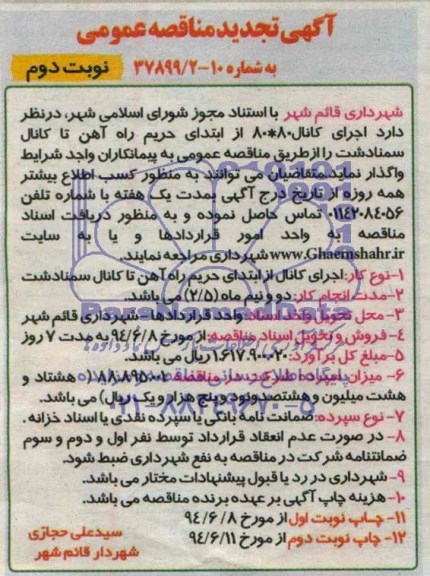 آگهی تجدید مناقصه عمومی
به شماره ۱۰-۳۷۸۹۹/۲
نوبت دوم
شهرداری قائم شهر با استناد مجوز شورای اسلامی شهر، درنظر
دارد اجرای کانال ۸۰*۸۰ از ابتدای حریم راه آهن تا کانال
سمنادشت را از طریق مناقصه عمومی به پیمانکاران واجد شرایط
واگذار نماید. متقاضیان می توانند به منظور کسب اطلاع بیشتر
همه روزه از تاریخ درج آگهی بمدت یک هفته با شماره تلفن
۰۱۱۴۲۰۸۴۰۵۶ تماس حاصل نموده و به منظور دریافت اسناد
مناقصه به واحد امور قراردادها و یا به سایت
www.Ghaemshahr.ir شهرداری مراجعه نمایند.
۱-نوع کار: اجرای کانال از ابتدای حریم راه آهن تا کانال سمنادشت
۲-مدت انجام کار: دو و نیم ماه (۲/۵) می باشد.
۳- محل تحویل واحد اسناد: واحد قراردادها - شهرداری قائم شهر
۴- فروش و تحویل اسناد مناقصه: از مورخ ۹۴/۶/۸ به مدت ۷ روز
۵- مبلغ کل برآورد: ۱.۶۱۷.۹۰۰.۰۲۰ ریال می باشد.
۶- میزان سپرده شرکت در مناقصه ۸۸.۸۹۵.۰۰۱ ( هشتاد و
هشت میلیون و هشتصد و نود و پنج هزار و یک ریال) می باشد.
۷- نوع سپرده: ضمانت نامه بانکی یا سپرده نقدی یا اسناد خزانه .
۸- در صورت عدم انعقاد قرارداد توسط نفر اول و دوم و سوم
ضمانتنامه شرکت در مناقصه به نفع شهرداری ضبط شود.
۹- شهرداری در رد یا قبول پیشنهادات مختار می باشد.
۱۰- هزینه چاپ آگهی بر عهده برنده مناقصه می باشد.
۱۱- چاپ نوبت اول از مورخ ۹۴/۶/۸
۱۲- چاپ نوبت دوم از مورخ ۹۴/۶/۱۱
سیدعلی حجازی
شهردار قائم شهر
۰۲۱-۸۸۳۴۹۶۷۰-۵